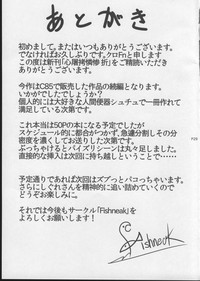 あとがき
初めまして。またはいつもありがとうございます。
でなければお久しぶりです。クロFnと申します
この度は新刊「心屠拷憐惨 折」をご精読いただき
ありがとうございます。
今作はC85で販売した作品の続編となります。
いかがでしたでしょうか？
個人的には大好きな人間便器シチュで一冊作れて
満足している次第です。
これ本当は50Pの本になる予定でしたが
スケジュール的に都合がつかず、急遽分割しその分
密度を濃くしてお送りした次第です。
ぶっちゃけるとパイズリシーンは丸々足しました。
直接的な挿入は次回に持ち越しということで……
予定通りであれば次回はズブっとパコっちゃいます。
さらにしぐれさんを精神的に追い詰めていくので
どうぞお楽しみに。
それでは今後もサークル「Fishneak」を
よろしくお願いします！
Fishneak